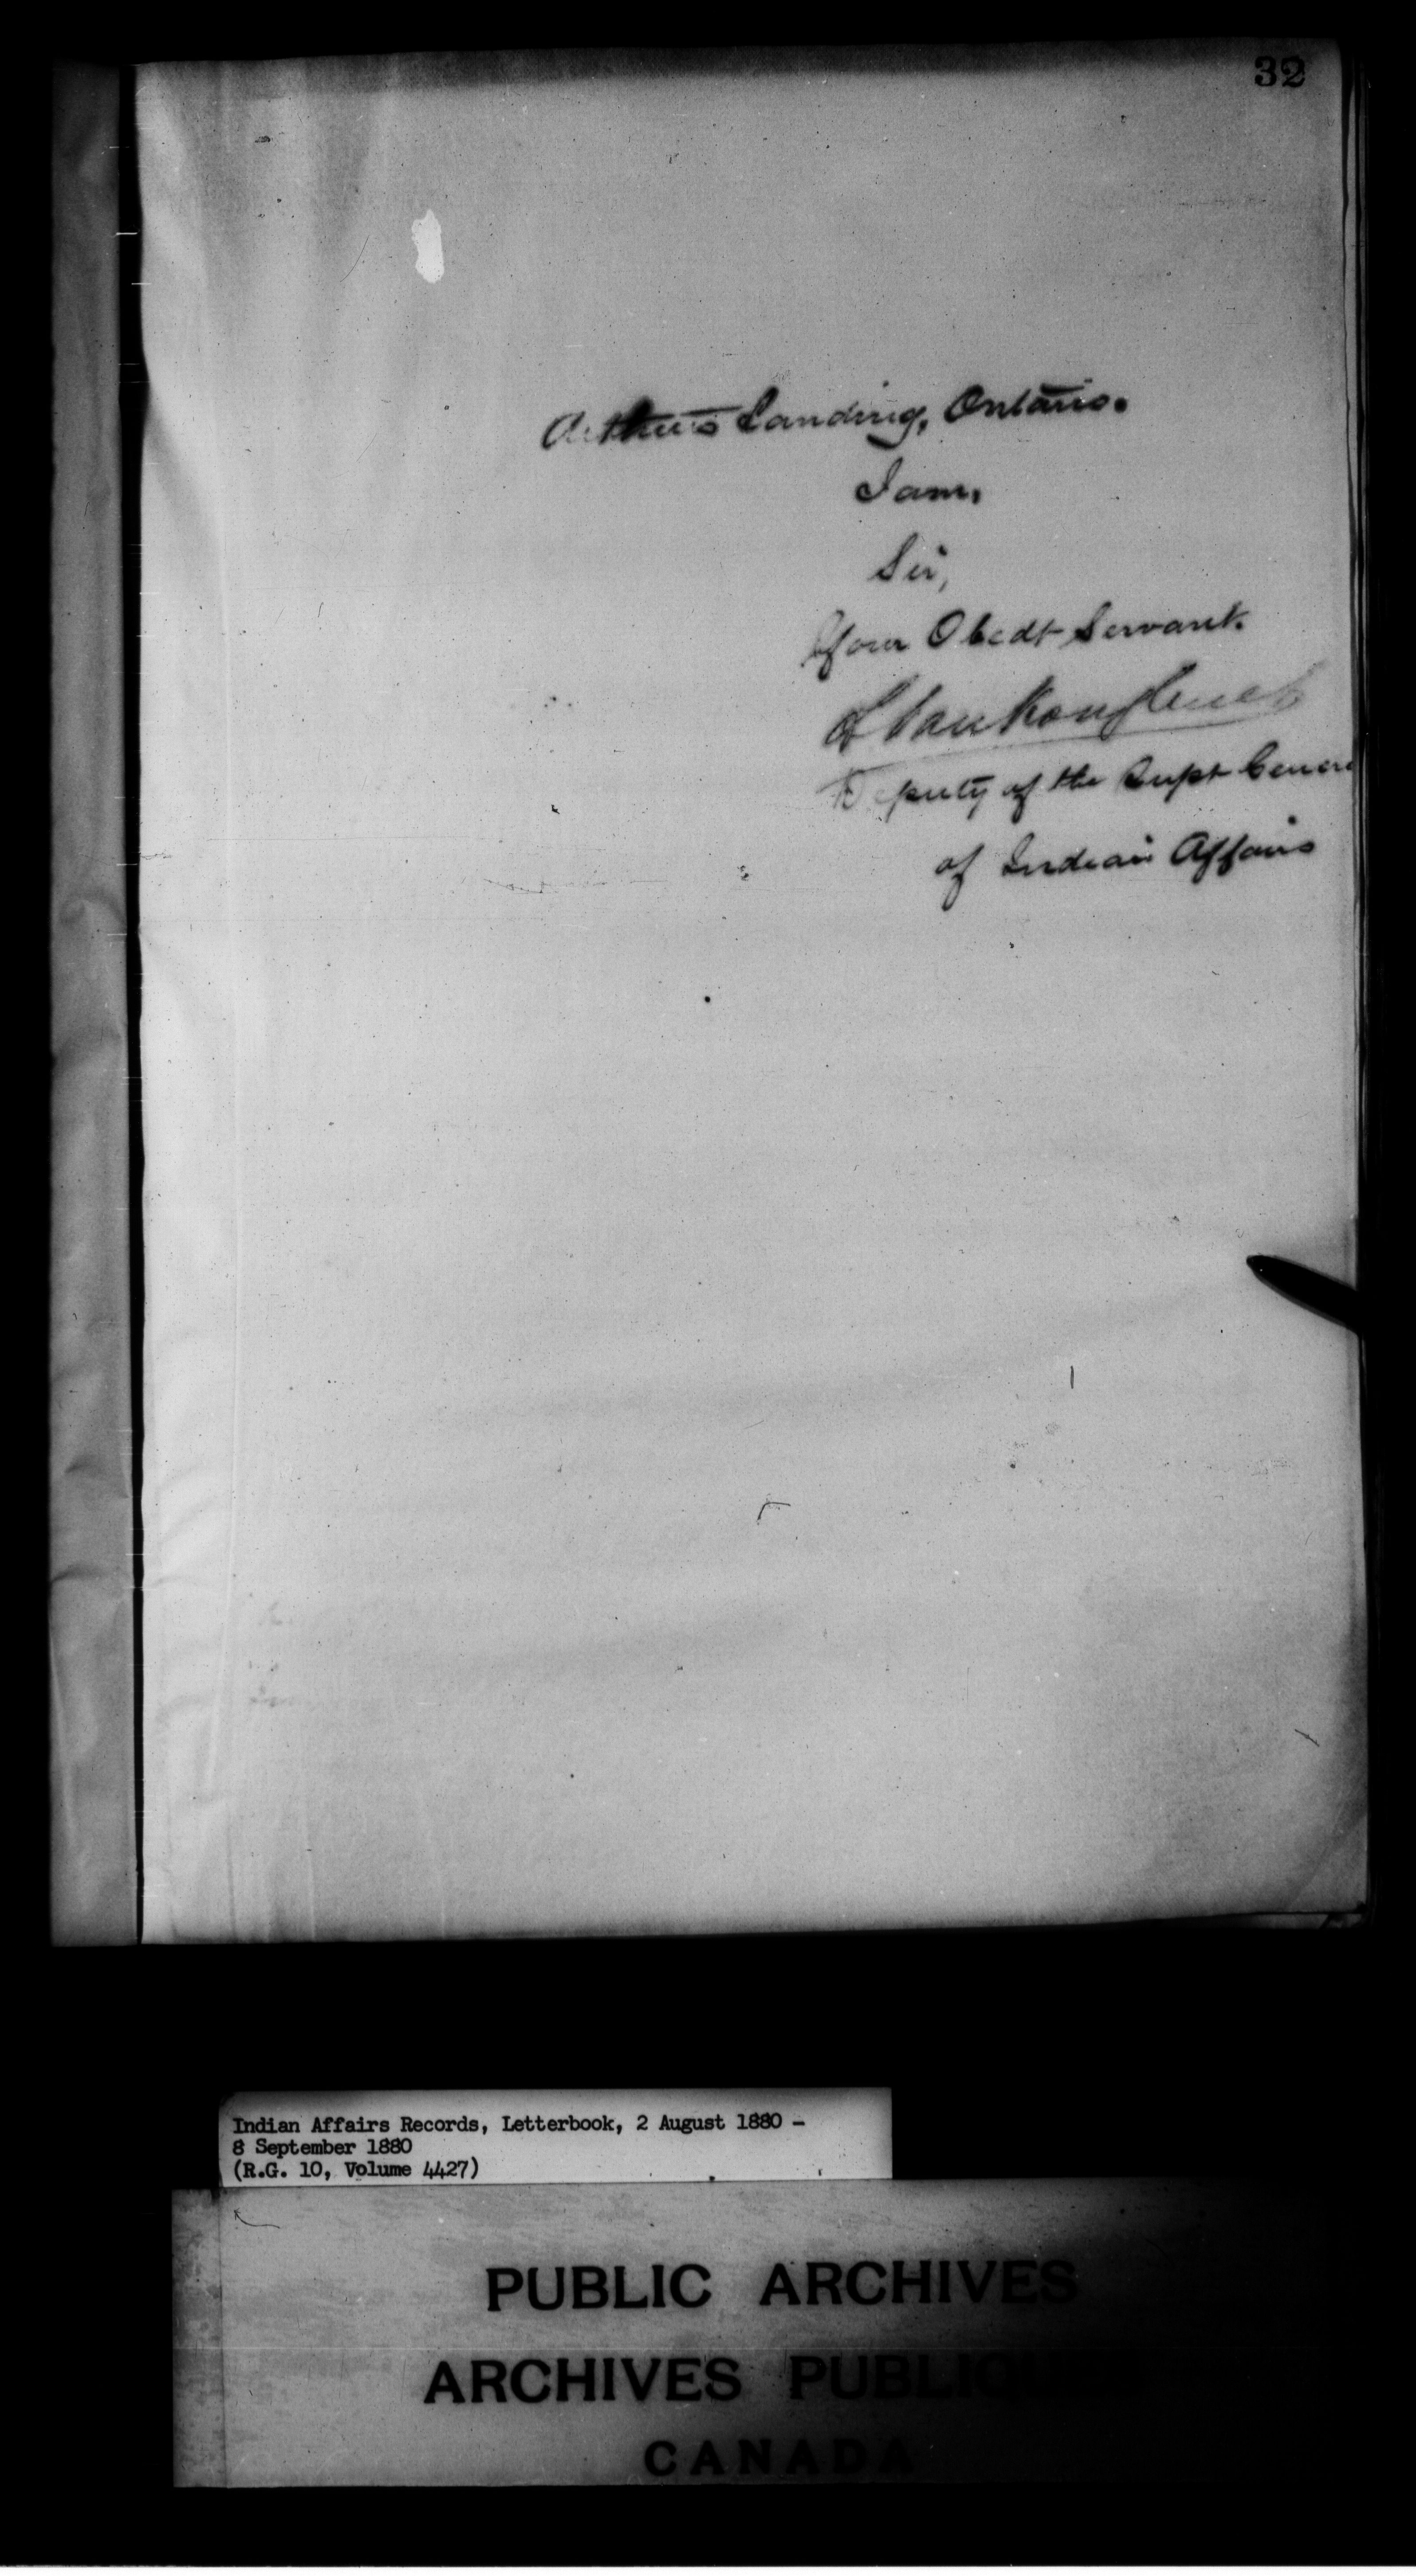 32
Arthur's Landing, Ontario.
I am,
Sir,
Your Obedt Servant.
L Vankoughnet
Deputy of the Supt Genera
of Indian Affairs
Indian Affairs Records, Letterbook, 2 August 1880 -
8 September 1880
(R.G. 10, Volume 4427)
PUBLIC ARCHIVES
ARCHIVES PUBLIQUES
CANADA